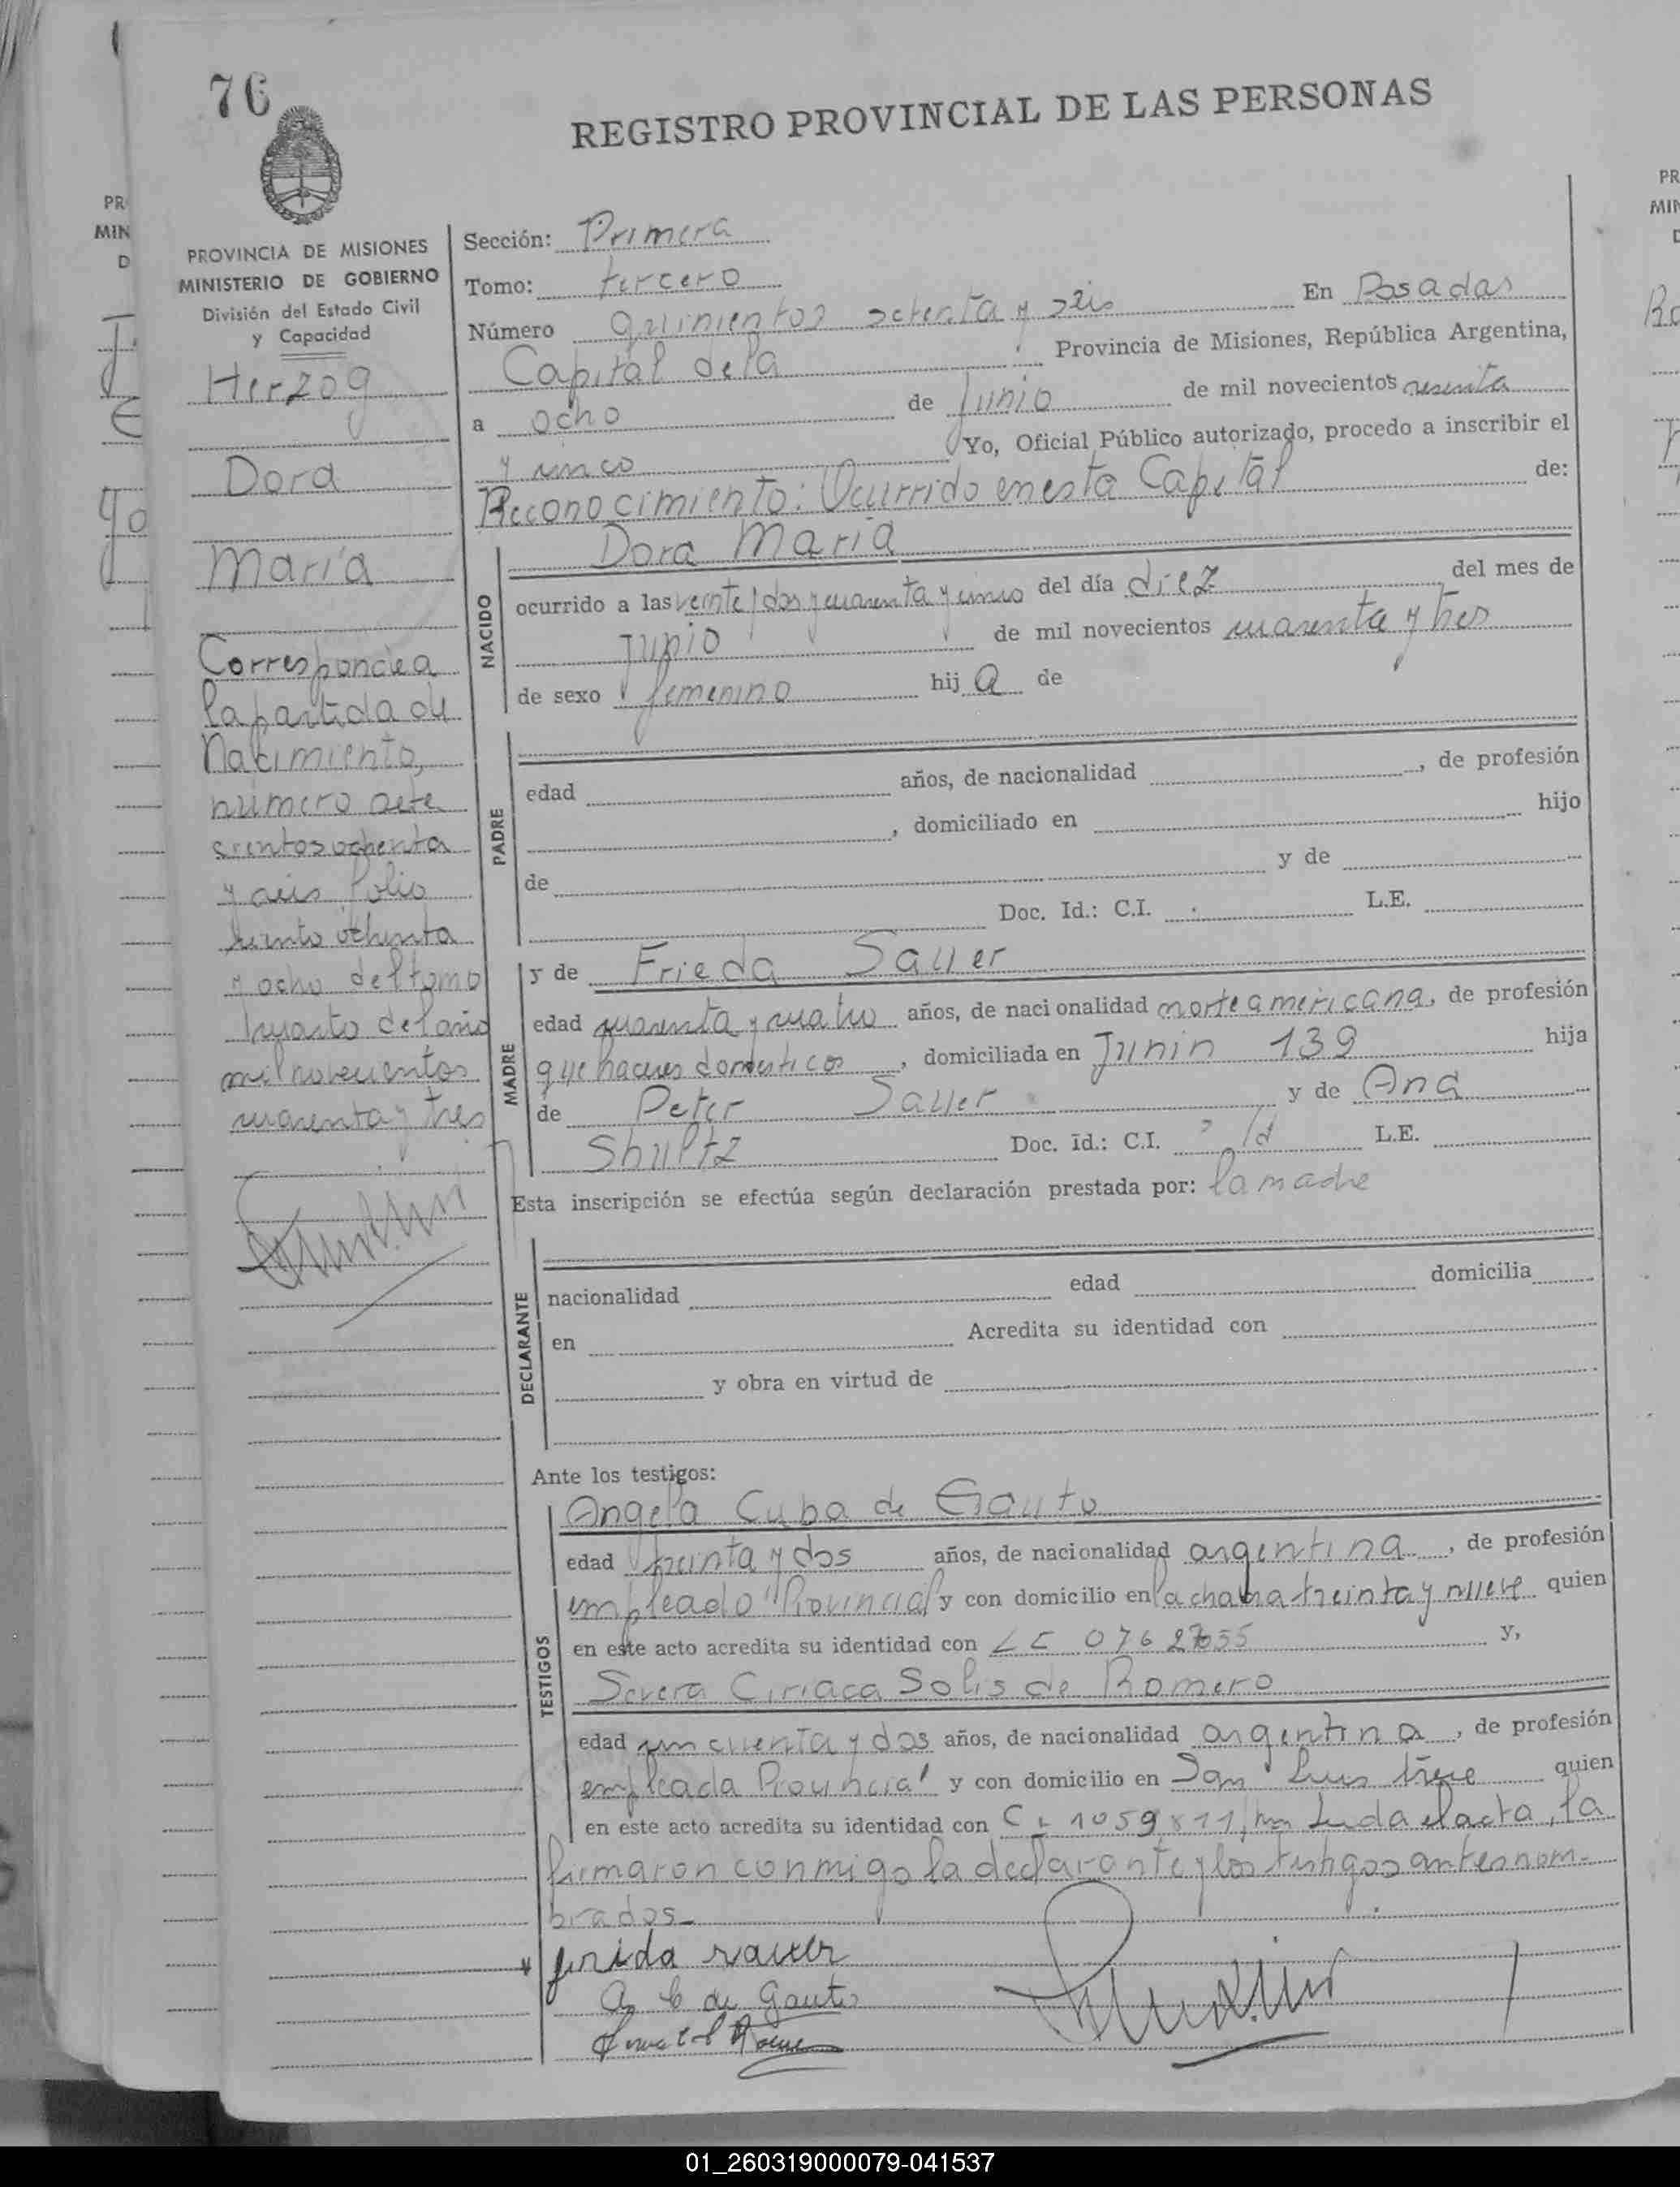 76
REGISTRO PROVINCIAL DE LAS PERSONAS
PROVINCIA DE MISIONES
MINISTERIO DE GOBIERNO
División del Estado Civil
y Capacidad
Herzog
Dora
María
Corresponde a
la partida de
Nacimiento,
número sete
cientos ochenta
y seis folio
ciento ochenta
y ocho del tomo
cuarto del año
mil novecientos
cuarenta y tres
Sección: Primera
Tomo: tercero
Número quinientos setenta y seis En Posadas
Capital de la Provincia de Misiones, República Argentina,
a ocho de Junio de mil novecientos sesenta
y cinco Yo, Oficial Público autorizado, procedo a inscribir el
Reconocimiento: Ocurrido en esta Capital de:
NACIDO
Dora María
ocurrido a las veinte y dos y cuarenta y cinco del día diez del mes de
Junio de mil novecientos cuarenta y tres
de sexo femenino hij a de
PADRE
edad años, de nacionalidad , de profesión
, domiciliado en hijo
de y de
Doc. Id.: C.I. L.E.
MADRE
y de Frieda Sauer
edad cuarenta y cuatro años, de nacionalidad norteamericana, de profesión
que haceres domésticos , domiciliada en Junin 139 hija
de Peter Sauer y de Ana
Shultz Doc. Id.: C.I. L.E.
Esta inscripción se efectúa según declaración prestada por: la madre
DECLARANTE
nacionalidad edad domicilia
en Acredita su identidad con
y obra en virtud de
Ante los testigos:
TESTIGOS
Angela Cuba de Gauto
edad treinta y dos años, de nacionalidad argentina , de profesión
empleado Provincial y con domicilio en la chacra treinta y nueve quien
en este acto acredita su identidad con y,
Severa Ciriaca Solis de Romero
edad cincuenta y dos años, de nacionalidad argentina , de profesión
empleada Provincial y con domicilio en San Luis trece quien
en este acto acredita su identidad con Leida el acta, la
firmaron conmigo la declarante y los testigos antes nom-
brados-
frida sauer
A C de Gauto
PR
MIN
D
PR
MIN
01_260319000079-041537